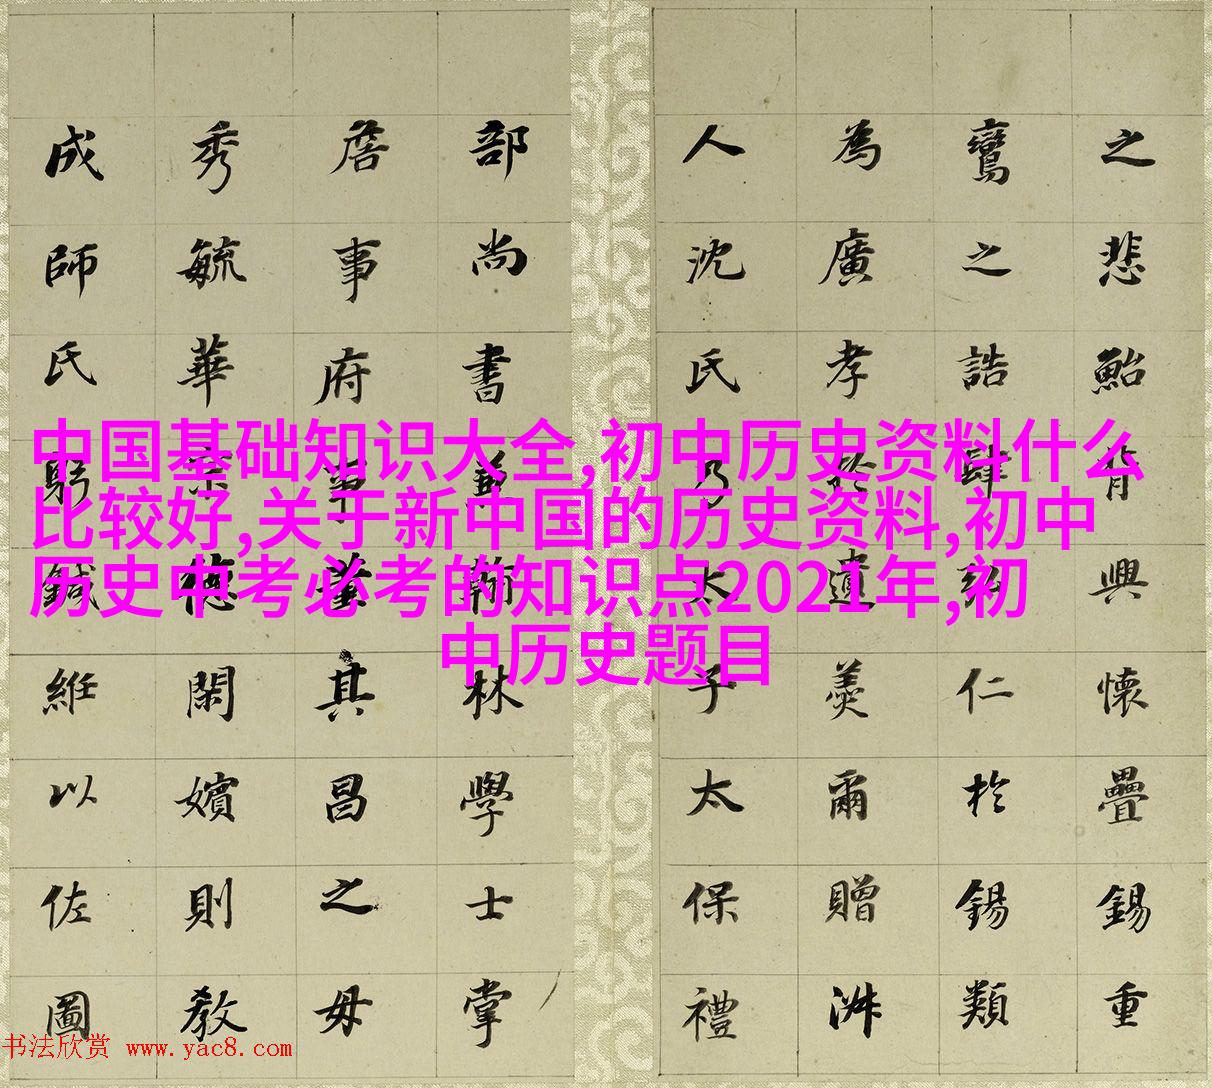 中国基础知识大全,初中历史资料什么
比较好,关于新中国的历史资料,初中
历史中考必考的知识点2021年,初
中历史题目
之悲鮐背興懷疊錫重
鸞之誥肆仁於錫類
為廣孝於遺羹爾贈淑
人沈氏乃太子太保禮
部尚書兼翰林學士掌
詹事府事董其昌之母
秀毓華宗德閑嬪則教
成師氏躬鍼絍以佐圖
书法欣赏 www.yac8.com